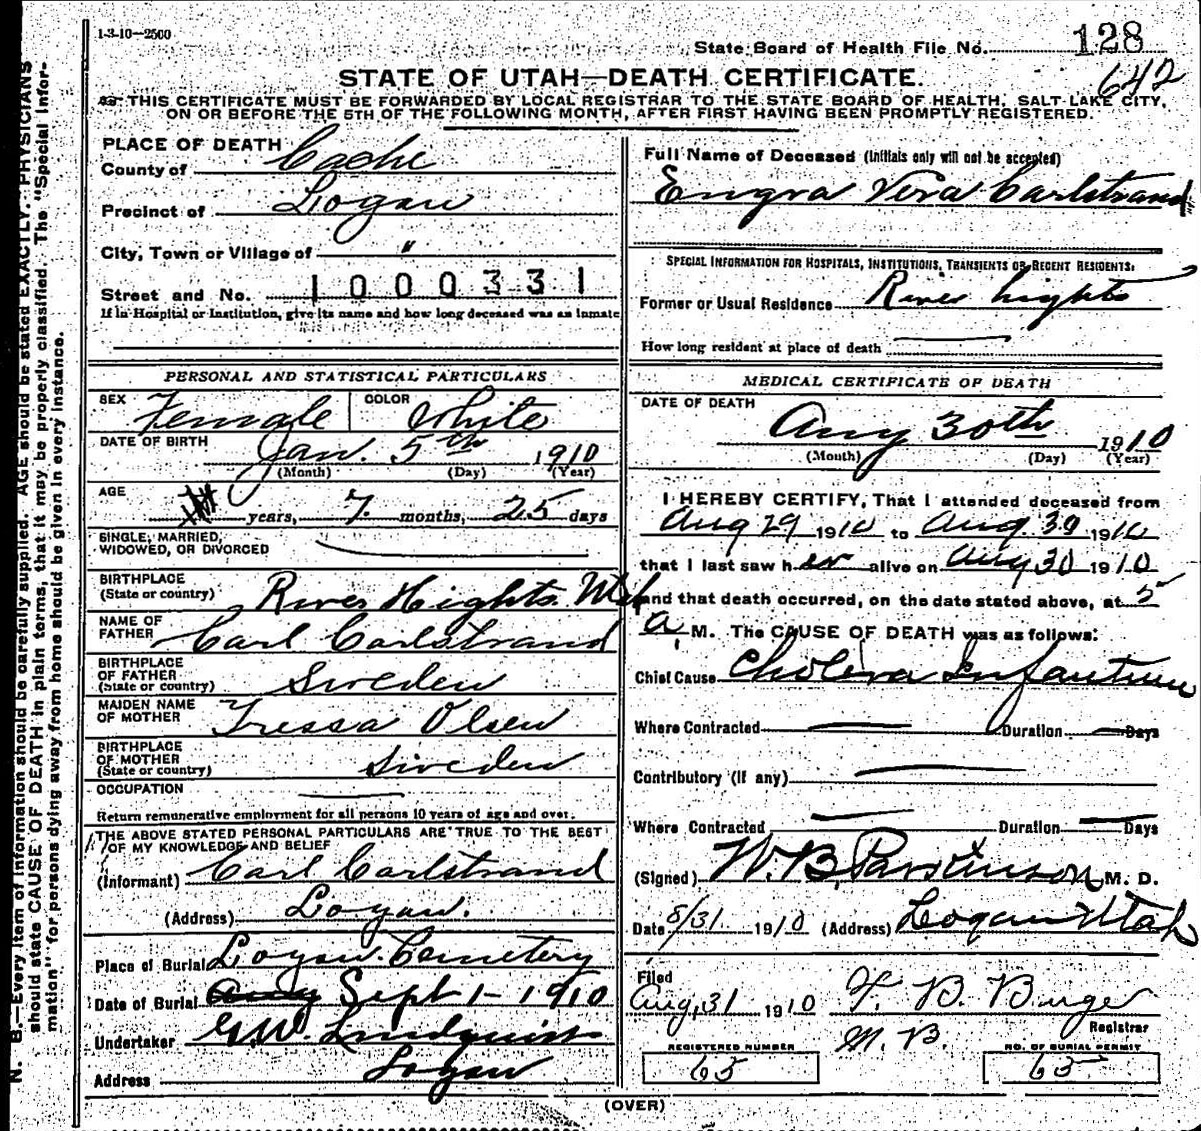 1-3-10—2500
State Board of Health File No. 128
642
STATE OF UTAH—DEATH CERTIFICATE.
THIS CERTIFICATE MUST BE FORWARDED BY LOCAL REGISTRAR TO THE STATE BOARD OF HEALTH, SALT LAKE CITY,
ON OR BEFORE THE 5TH OF THE FOLLOWING MONTH, AFTER FIRST HAVING BEEN PROMPTLY REGISTERED.
PLACE OF DEATH
County of Cache
Precinct of Logan
City, Town or Village of "
Street and No. 1000331
If in Hospital or Institution, give its name and how long deceased was an inmate
PERSONAL AND STATISTICAL PARTICULARS
SEX Female COLOR White
DATE OF BIRTH Jan. 5th 1910
(Month) (Day) (Year)
AGE years, 7 months, 25 days
SINGLE, MARRIED,
WIDOWED, OR DIVORCED
BIRTHPLACE
(State or country) River Hights. Utah
NAME OF
FATHER Carl Carlstrand
BIRTHPLACE
OF FATHER
(State or country) Sweden
MAIDEN NAME
OF MOTHER Tressa Olsen
BIRTHPLACE
OF MOTHER
(State or country) Sweden
OCCUPATION
Return remunerative employment for all persons 10 years of age and over.
THE ABOVE STATED PERSONAL PARTICULARS ARE TRUE TO THE BEST
OF MY KNOWLEDGE AND BELIEF
(Informant) Carl Carlstrand
(Address) Logan.
Place of Burial Logan Cemetery
Date of Burial Aug Sept 1-1910
Undertaker G.W. Lindquist
Address Logan
Full Name of Deceased (Initials only will not be accepted)
Engra Vera Carlstrand
SPECIAL INFORMATION FOR HOSPITALS, INSTITUTIONS, TRANSIENTS OR RECENT RESIDENTS:
Former or Usual Residence River hights
How long resident at place of death
MEDICAL CERTIFICATE OF DEATH
DATE OF DEATH
Aug 30th 1910
(Month) (Day) (Year)
I HEREBY CERTIFY, That I attended deceased from
Aug 29 1910 to Aug. 30 1910
that I last saw her alive on Aug 30 1910
and that death occurred, on the date stated above, at 5
a M. The CAUSE OF DEATH was as follows:
Chief Cause Cholera Infantum
Where Contracted Duration Days
Contributory (if any)
Where Contracted Duration Days
(Signed) W. B. Parkinson M. D.
Date 8/31 1910 (Address) Logan Utah
Filed
Aug, 31 1910 F. B. Burger
Registrar
M. B.
REGISTERED NUMBER 65
NO. OF BURIAL PERMIT 65
(OVER)
N. B.—Every item of information should be carefully supplied. AGE should be stated EXACTLY. PHYSICIANS
should state CAUSE OF DEATH in plain terms, that it may be properly classified. The "Special Infor-
mation" for persons dying away from home should be given in every instance.